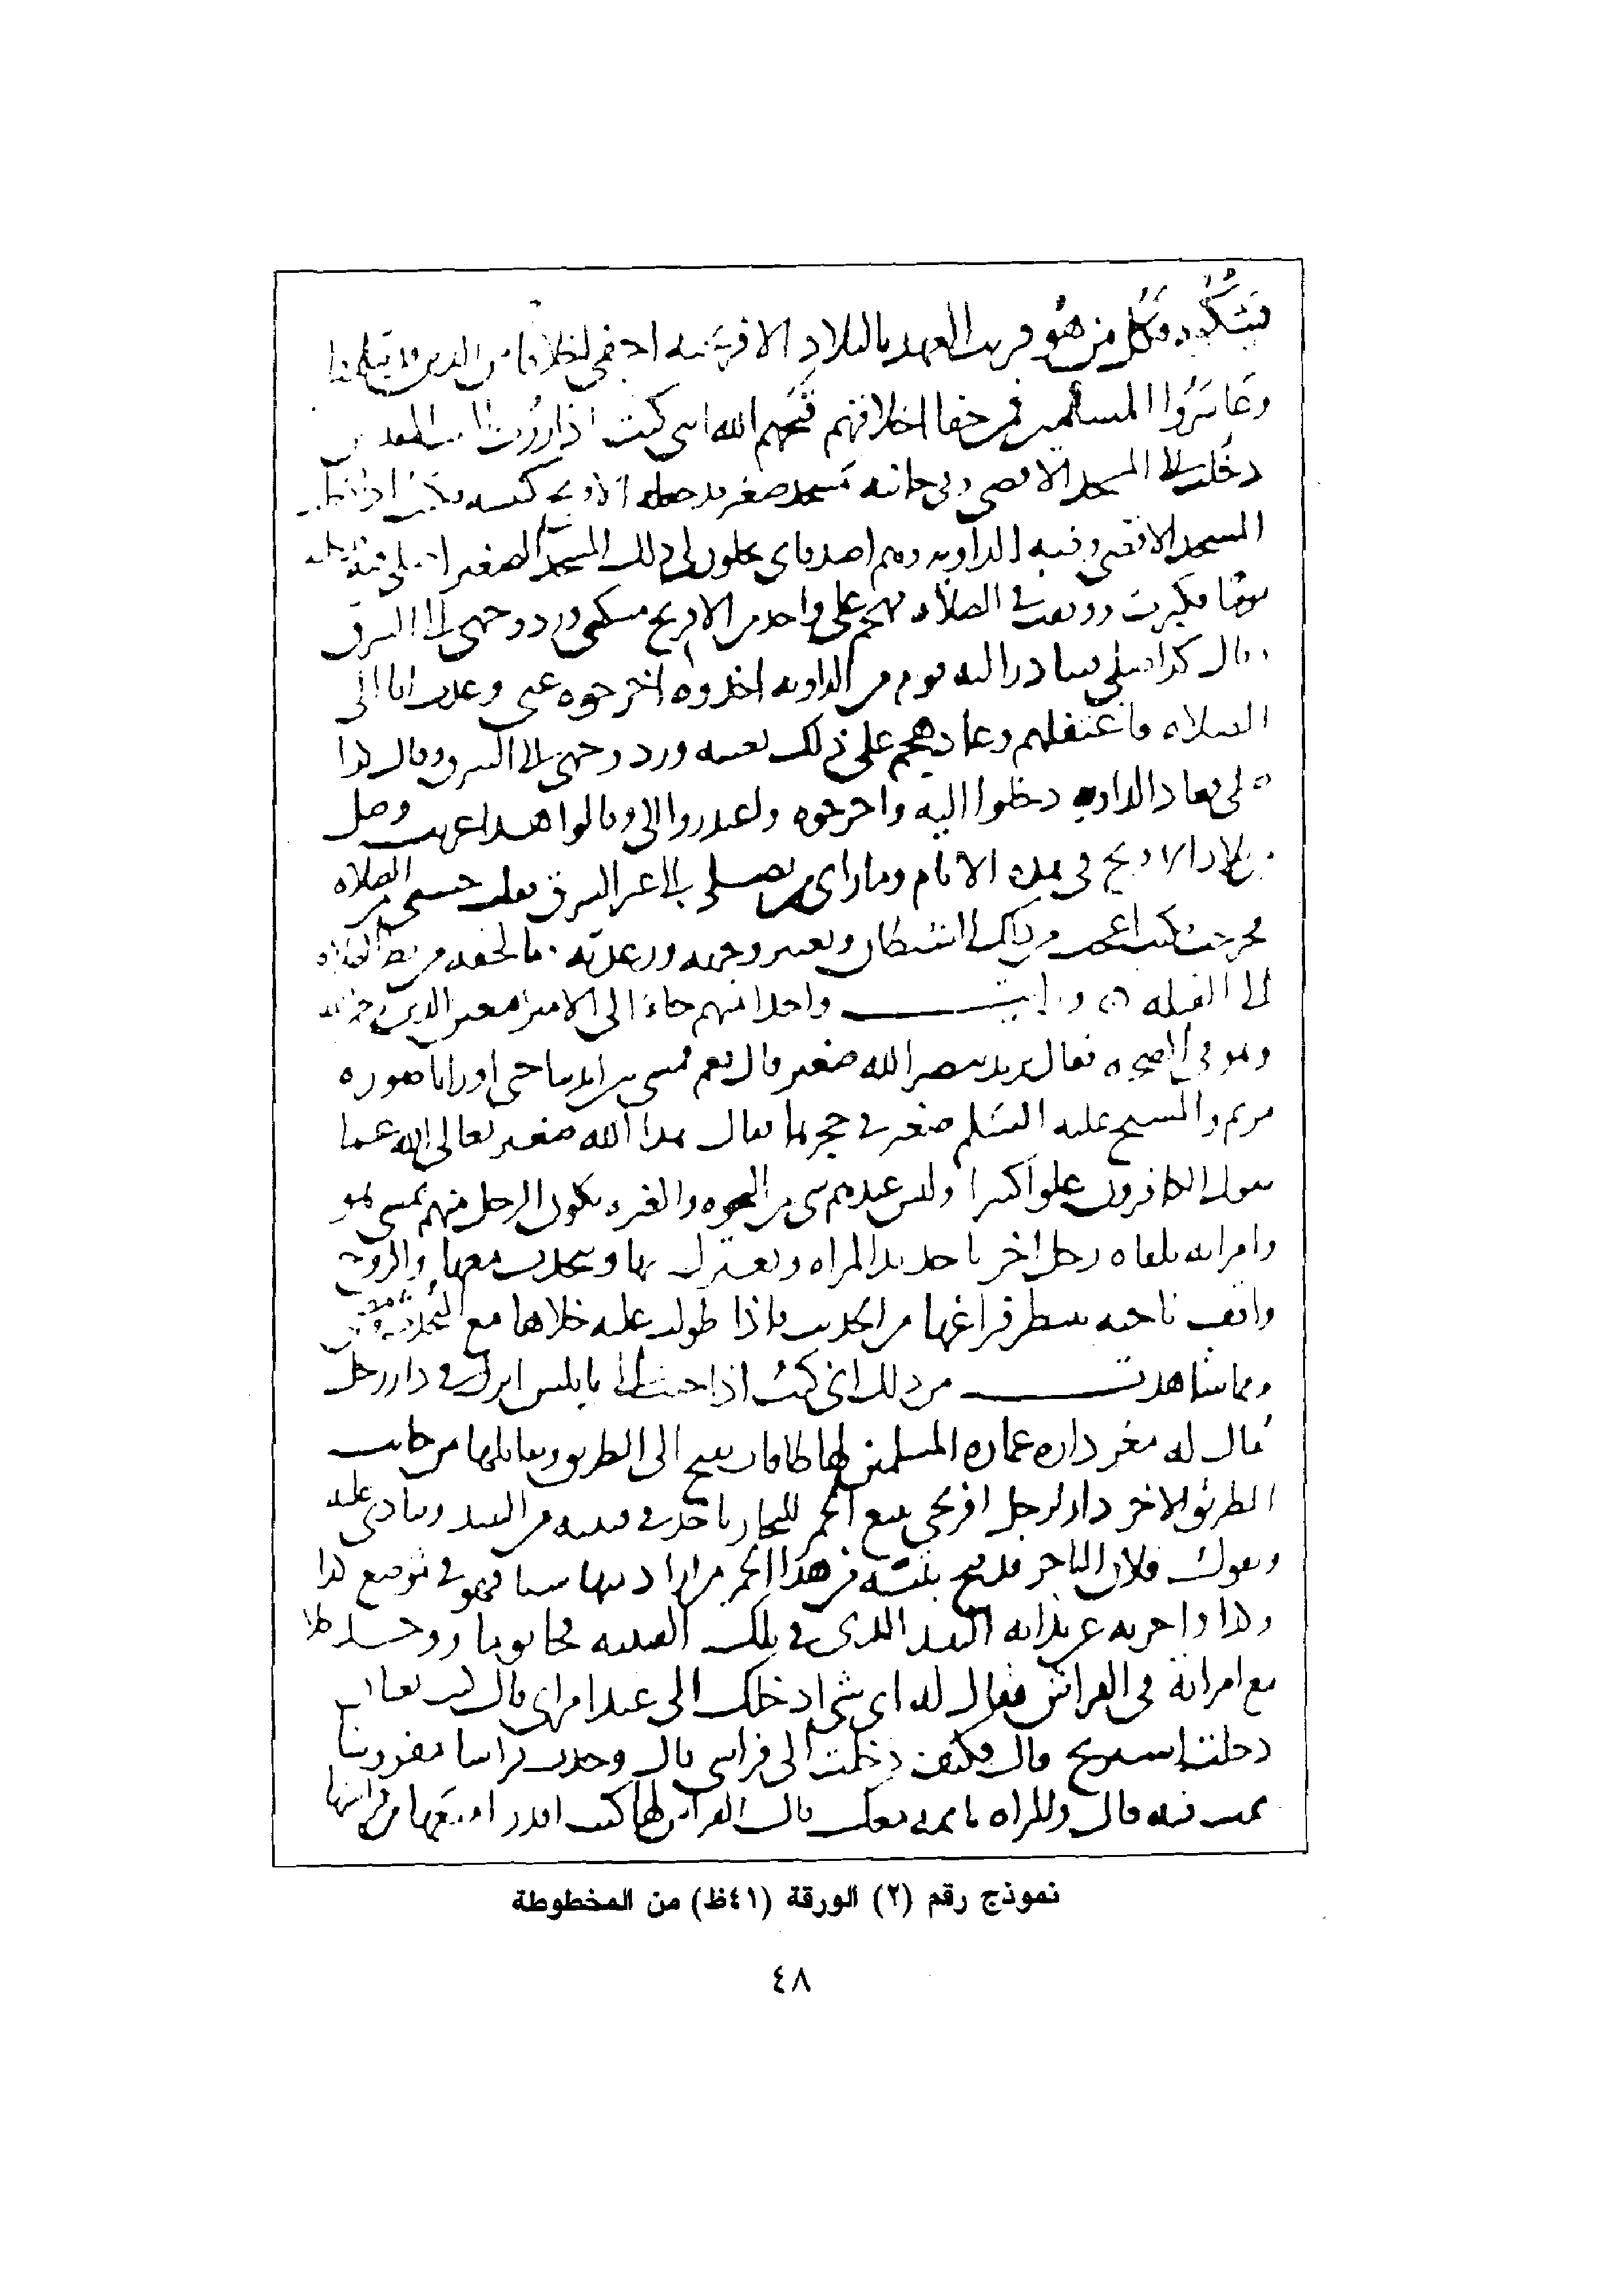 فكل من هو قريب العهد بالبلاد الافرنجيه اجفى اخلاقا من الدين قد تبلدوا
وعاشروا المسلمين فمن جفا اخلاقهم قبحهم الله اننى كنت اذا زرت البيت المقدس
دخلت الى المسجد الاقصى وفى جانبه مسجد صغير قد جعله الافرنج كنيسه فكنت اذا دخلت
المسجد الاقصى وفيه الداويه وهم اصدقاى يخلون لى ذلك المسجد الصغير اصلى فيه فدخلته
يوما فكبرت ووقفت فى الصلاه فهجم على واحد من الافرنج مسكنى ورد وجهى الى الشرق
وقال كذا صلى فتبادر اليه قوم من الداويه اخذوه اخرجوه عنى وعدت انا الى
الصلاه فاغتفلهم وعاد هجم على ذلك بعينه ورد وجهى الى الشرق وقال كذا
صلى فعاد الداويه دخلوا اليه واخرجوه واعتذروا الى وقالوا هذا غريب وصل
من بلاد الافرنج فى هذه الايام وما راى من يصلى الى غير الشرق فقلت حسبى من الصلاه
فخرجت فكنت اعجب من ذلك الشيطان وتغيير وجهه ورعدته وما لحقه من نظر الصلاه
الى القبله ورايت واحدا منهم جاء الى الامير معين الدين رحمه الله
وهو فى الصخره فقال تريد تبصر الله صغير قال نعم فمشى بين ايدينا حتى اورانا صوره
مريم والمسيح عليه السلم صغير فى حجرها فقال هذا الله صغير تعالى الله عما
يقول الكافرون علوا كبيرا وليس عندهم شى من النخوه والغيره يكون الرجل منهم يمشى هو
وامراته يلقاه رجل اخر ياخذ يد المراه ويعتزل بها ويتحدث معها والزوج
واقف ناحيه ينتظر فراغها من الحديث فاذا طولت عليه خلاها مع المتحدث ومضى
ومما شاهدت من ذلك انى كنت اذا جيت الى نابلس انزل فى دار رجل
يقال له معز داره عماره المسلمين لها طاقات تفتح الى الطريق ويقابلها من جانب
الطريق الاخر دار لرجل افرنجى يبيع الخمر للتجار ياخذ فى قنينه من النبيذ وينادى عليه
ويقول فلان التاجر قد فتح بتيه من هذا الخمر من اراد منها شيا فهو فى موضع كذا
وكذا واجرته عن ندايه النبيذ الذى فى تلك القنينه فجا يوما ووجد رجلا
مع امراته فى الفراش فقال له اى شى ادخلك الى عند امراتى قال كنت تعبان
دخلت استريح قال فكيف دخلت الى فراشى قال وجدت فراشا مفروشا
نمت فيه قال والمراه نايمه معك قال الفراش لها كنت اقدر امنعها من فراشها
نموذج رقم (٢) الورقة (٤١ظ) من المخطوطة
٤٨